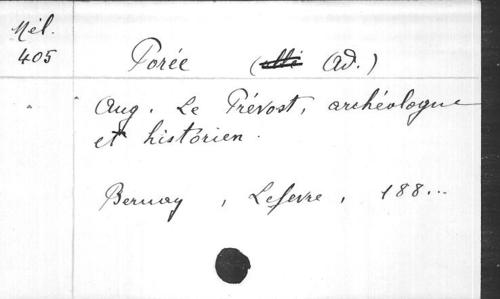 Mél.
405
Porée ( Ad.)
Aug. Le Prévost, archéologue
et historien.
Bernay, Lefevre, 188...